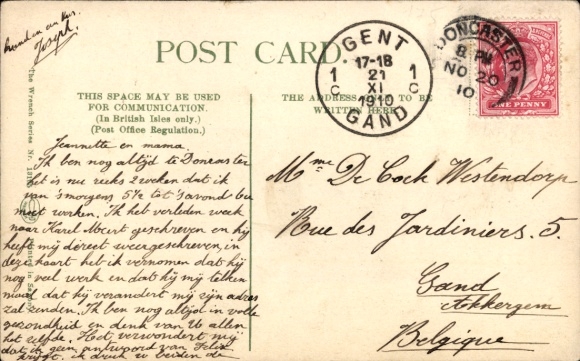 Joseph.
POST CARD.
THIS SPACE MAY BE USED
FOR COMMUNICATION.
(In British Isles only.)
(Post Office Regulation.)
THE ADDRESS ONLY TO BE
WRITTEN HERE.
GENT
17-18
21
XI
1910
GAND
1 C
1 C
DONCASTER
8 PM
NO 20
10
ONE PENNY
The Wrench Series Nr.
Printed in
Jeannette en mama.
Ik ben nog altijd te Doncaster
het is nu reeks 2 weken dat ik
van 's morgens 5½ tot 's avond
moet werken. Ik heb verleden week
naar Karel geschreven en hij
heeft mij direct weergeschreven, in
deze kaart heb ik vernomen dat hij
nog veel werk en dat hij mij telken
maal dat hij verandert mij zijn adres
zal zenden. Ik ben nog altijd in volle
gezondheid en denk van U allen
het zelfde. Het verwondert mij
dat ik geen antwoord van Felix
ik druk u beiden de
Mme De Cock Westendorp
Rue des Jardiniers. 5.
Gand
Akkergem
Belgique